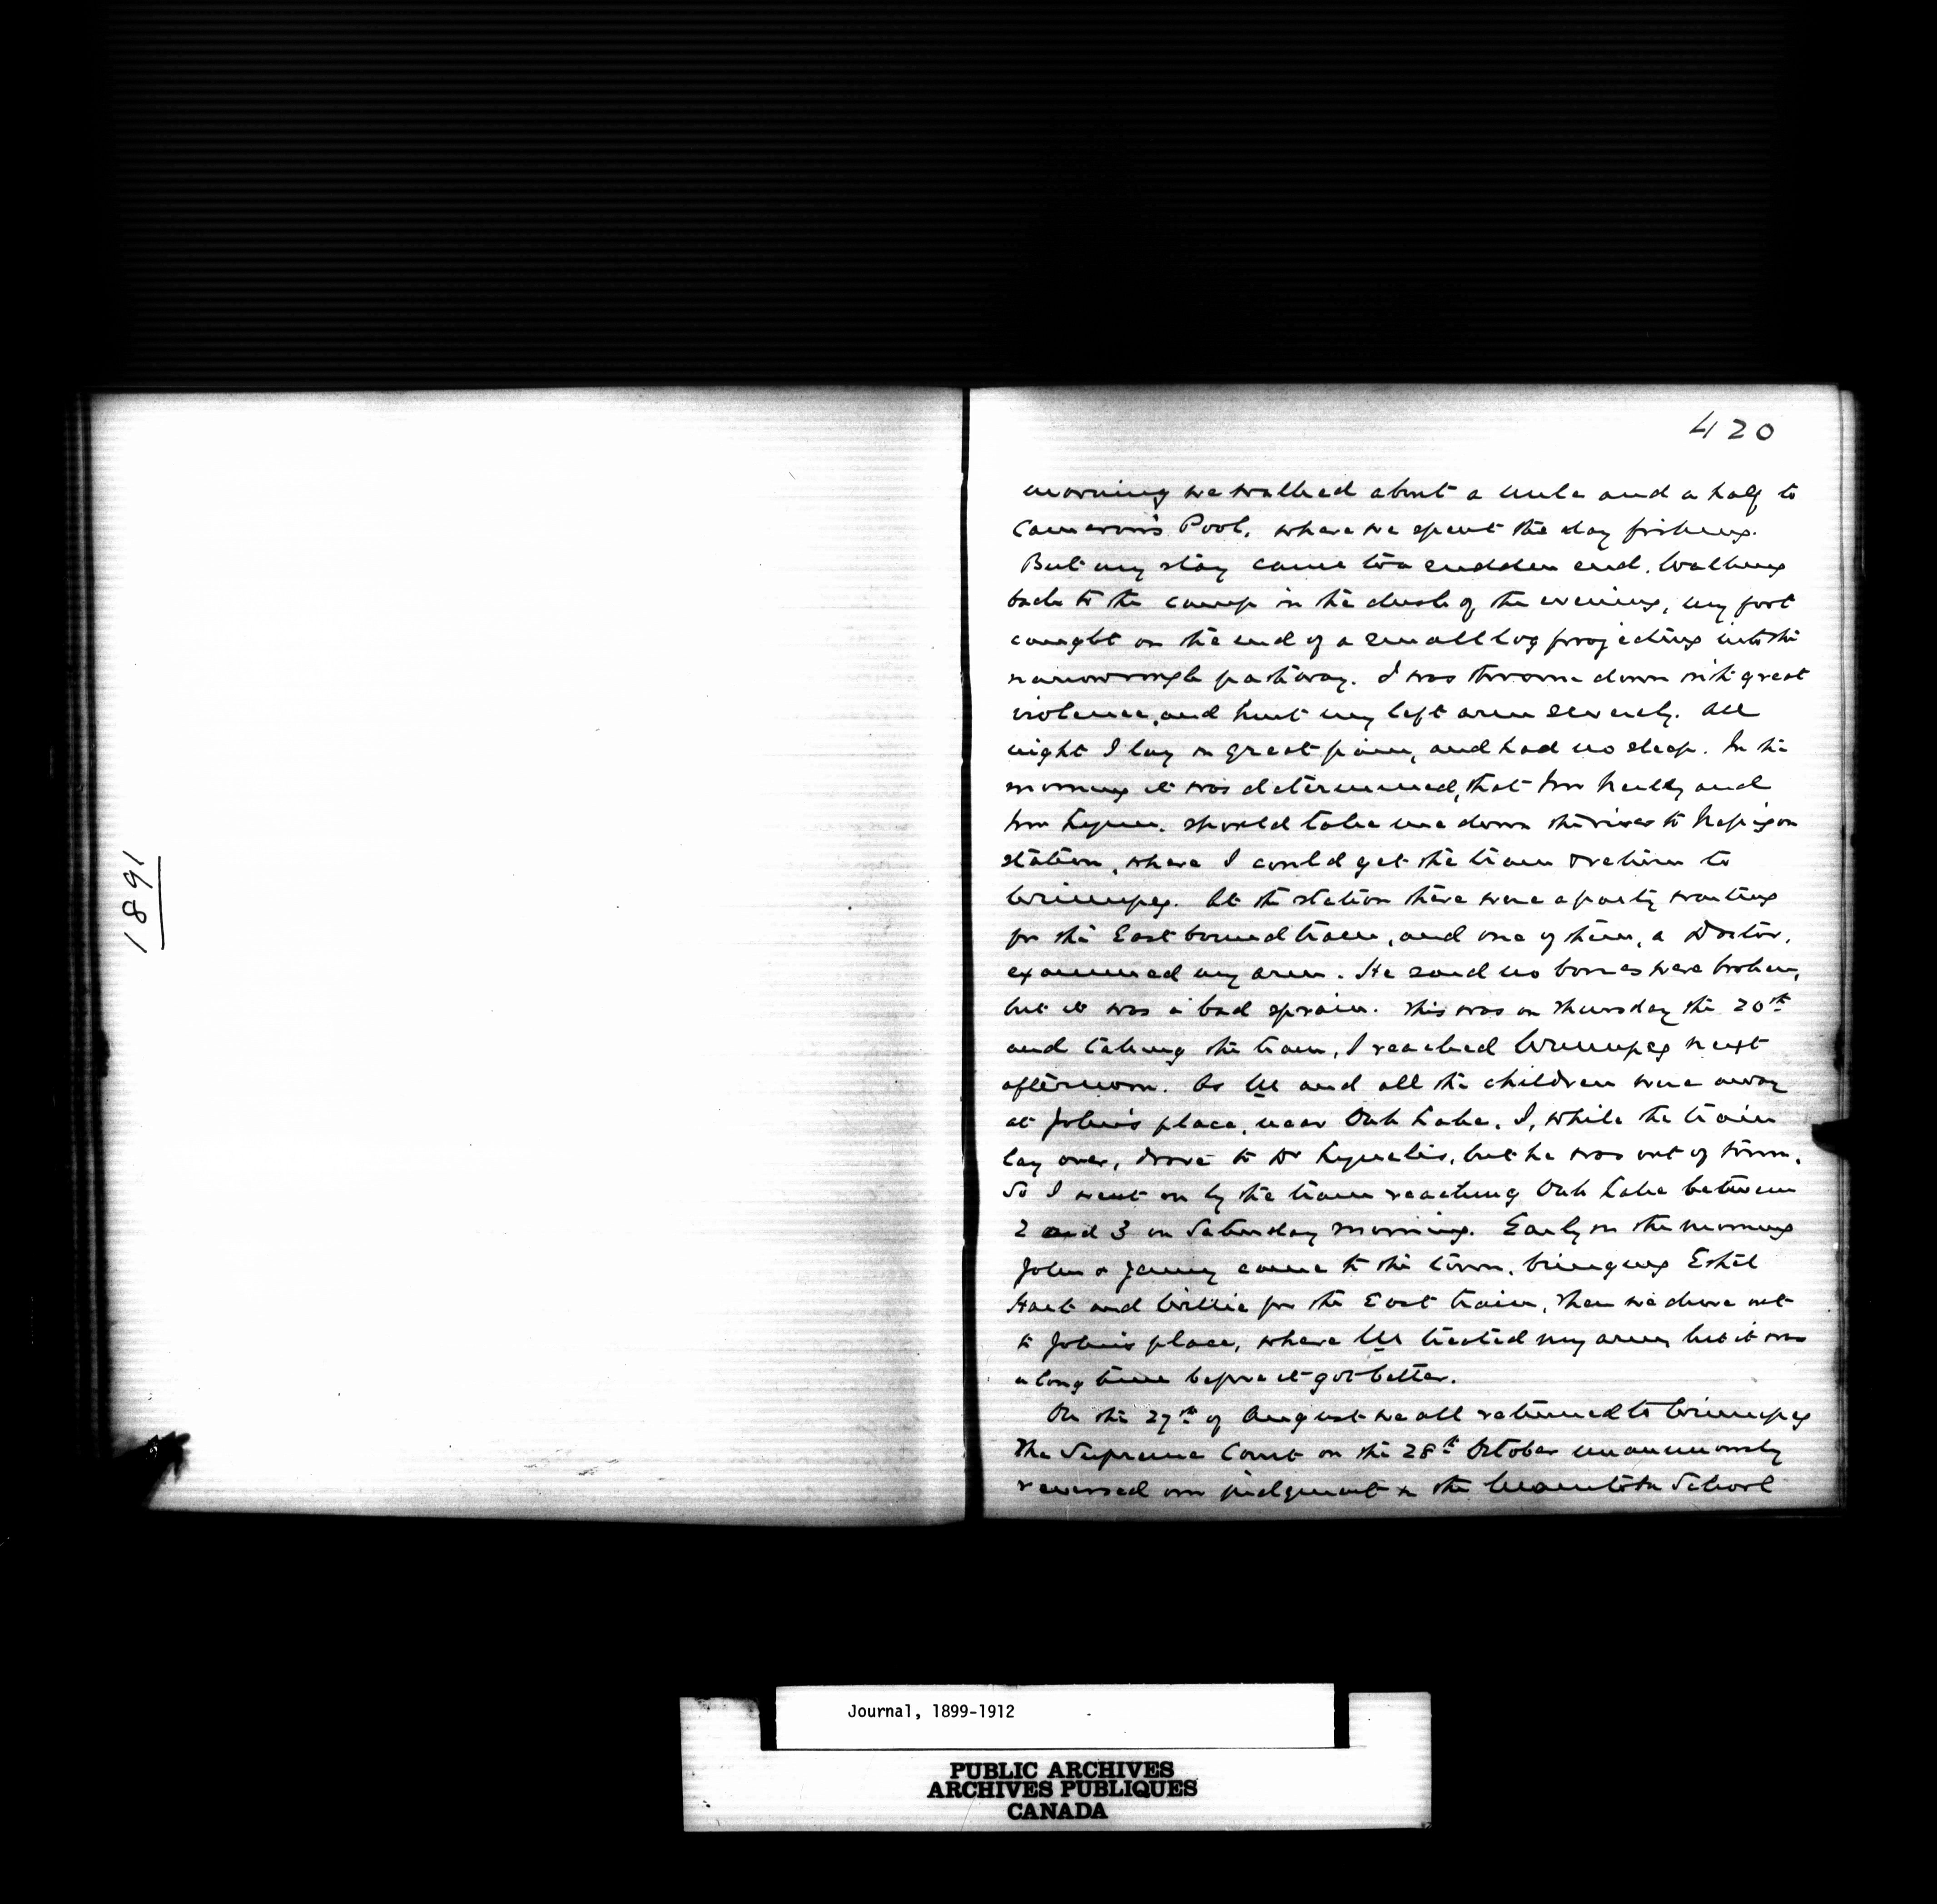 1891
420
morning we walked about a mile and a half to
Cameron's Pool, where we spent the day fishing.
But my stay came to a sudden end. Walking
back to the camp in the dusk of the evening, my foot
caught on the end of a small log projecting into the
narrow rough pathway. I was thrown down with great
violence, and hurt my left arm severely. All
night I lay in great pain, and had no sleep. In the
morning it was determined, that and
should take me down the river to Nepigon
station, where I could get the train & return to
Winnipeg. At the station there were a party waiting
for the East bound train, and one of them, a Doctor,
examined my arm. He said no bones were broken,
but it was a bad sprain. This was on Thursday the 20th
and taking the train, I reached Winnipeg next
afternoon. As M and all the children were away
at John's place, near Oak Lake, I, while the train
lay over, drove to Dr but he was out of town.
So I went on by the train reaching Oak Lake between
2 and 3 on Saturday morning. Early in the morning
John & Jenny came to the town, bringing Ethel
Hart and Willie for the East train, then we drove out
to John's place, where M treated my arm, but it was
a long time before it got better.
On the 27th of August we all returned to Winnipeg
The Supreme Court on the 28th October unanimously
reversed our judgment in the Manitoba School
Journal, 1899-1912
PUBLIC ARCHIVES
ARCHIVES PUBLIQUES
CANADA